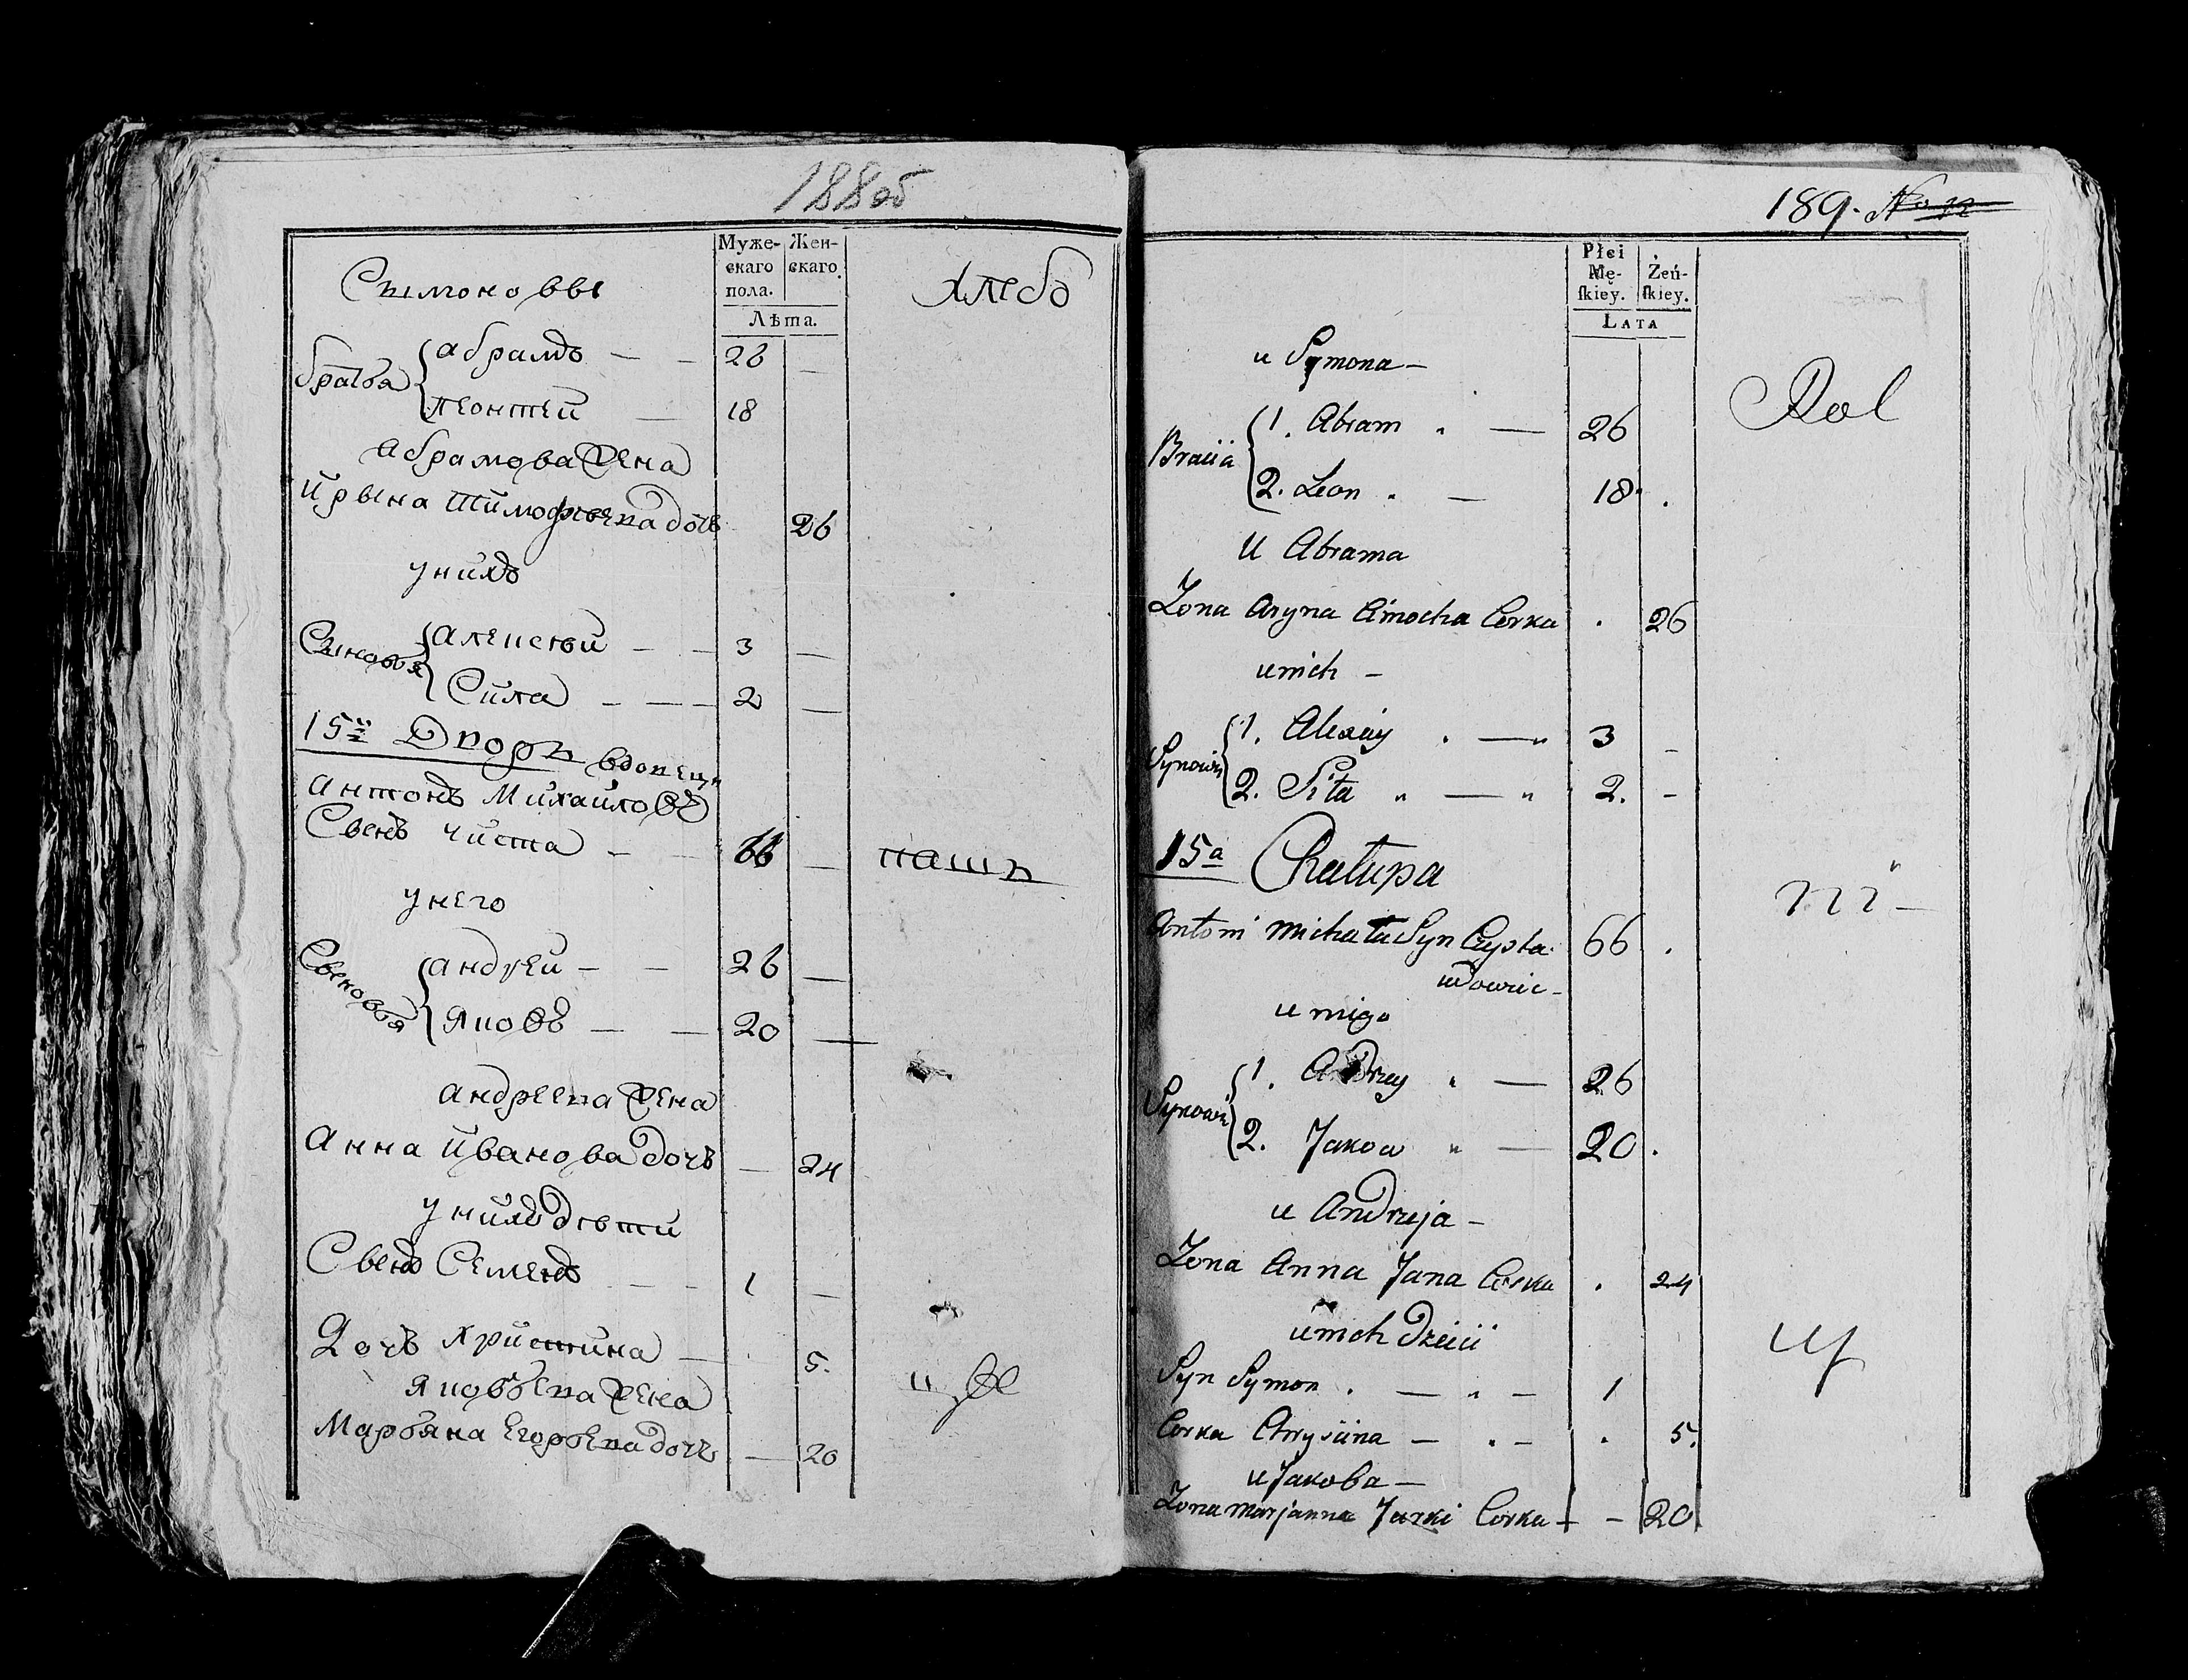 188об
Муже-
скаго
пола.
Жен-
скаго.
Лѣта.
Сымоновы
хлебо
братья
абрамъ — — 26 —
леонтей — 18
абрамова жена
ирына тимофѣева дочь 26
у нихъ
Сыновья
алексѣй — — 3 —
Сила — — — 2 —
15й Дворъ вдовецъ
антонъ Михайловъ
Сынъ чиста — — 66 — пашъ
у него
Сыновья
андрей — — 26 —
яковъ — — 20 —
андреева жена
анна иванова дочь — 24
у нихъ дѣти
Сынъ Семенъ — — 1 —
Дочь христина — . 5.
яковѣва жена
Марьяна егорьева дочь — 20
189. No 12
Płci
Mę-
skiey.
Żeń-
skiey.
LATA
u Symona —
Rol
Braćia
1. Abram . — 26
2. Leon . — 18 .
U Abrama
Zona Aryna Cimocha Corka . 26
u nich —
Synowie
1. Alexiey . — „ 3 –
2. Siła „ — „ 2. –
15a Chałupa
ni –
Antoni Michała Syn Czysta 66 .
wdowiec
u niego
Synowie
1. Andrzey . — 26
2. Jakow „ — 20 .
u Andrzeja —
Zona Anna Jana Corka . 24
u nich Dzieci
Syn Symon . — „ — 1
Corka Chrysćina — . — . 5.
u Jakoba —
Zona Marjanna Jurki Corka — – 20